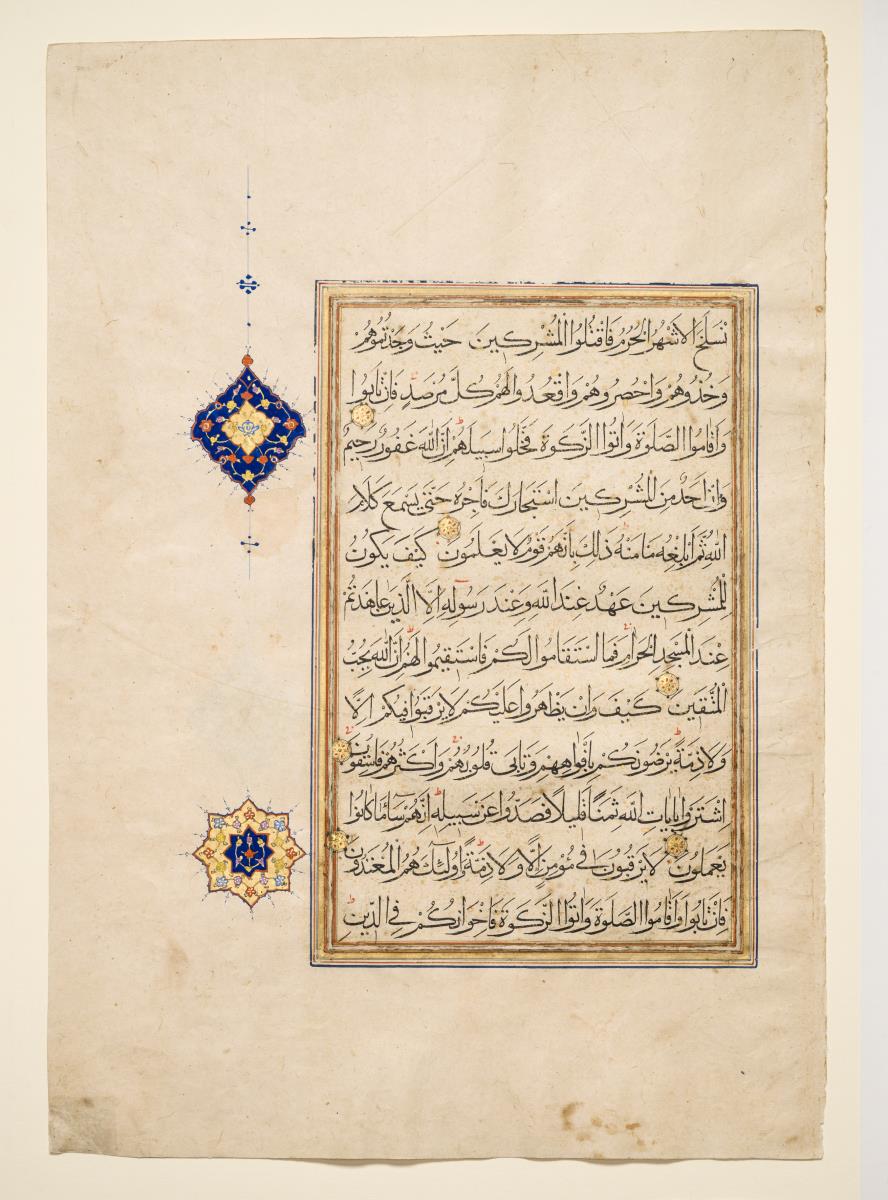 نْسَلَخَ الْاَشْهُرُ الْحُرُمُ فَاقْتُلُوا الْمُشْرِكِينَ حَيْثُ وَجَدْتُمُوهُمْ
وَخُذُوهُمْ وَاحْصُرُوهُمْ وَاقْعُدُوا لَهُمْ كُلَّ مَرْصَدٍ فَاِنْ تَابُوا
وَاَقَامُوا الصَّلٰوةَ وَاٰتَوُا الزَّكٰوةَ فَخَلُّوا سَبِيلَهُمْ اِنَّ اللّٰهَ غَفُورٌ رَحِيمٌ
وَاِنْ اَحَدٌ مِنَ الْمُشْرِكِينَ اسْتَجَارَكَ فَاَجِرْهُ حَتّٰى يَسْمَعَ كَلَامَ
اللّٰهِ ثُمَّ اَبْلِغْهُ مَاْمَنَهُ ذٰلِكَ بِاَنَّهُمْ قَوْمٌ لَا يَعْلَمُونَ كَيْفَ يَكُونُ
لِلْمُشْرِكِينَ عَهْدٌ عِنْدَ اللّٰهِ وَعِنْدَ رَسُولِهِ اِلَّا الَّذِينَ عَاهَدْتُمْ
عِنْدَ الْمَسْجِدِ الْحَرَامِ فَمَا اسْتَقَامُوا لَكُمْ فَاسْتَقِيمُوا لَهُمْ اِنَّ اللّٰهَ يُحِبُّ
الْمُتَّقِينَ كَيْفَ وَاِنْ يَظْهَرُوا عَلَيْكُمْ لَا يَرْقُبُوا فِيكُمْ اِلًّا
وَلَا ذِمَّةً يُرْضُونَكُمْ بِاَفْوَاهِهِمْ وَتَاْبٰى قُلُوبُهُمْ وَاَكْثَرُهُمْ فَاسِقُونَ
اِشْتَرَوْا بِاٰيَاتِ اللّٰهِ ثَمَنًا قَلِيلًا فَصَدُّوا عَنْ سَبِيلِهِ اِنَّهُمْ سَٓاءَ مَا كَانُوا
يَعْمَلُونَ لَا يَرْقُبُونَ فِى مُؤْمِنٍ اِلًّا وَلَا ذِمَّةً وَاُولٰٓئِكَ هُمُ الْمُعْتَدُونَ
فَاِنْ تَابُوا وَاَقَامُوا الصَّلٰوةَ وَاٰتَوُا الزَّكٰوةَ فَاِخْوَانُكُمْ فِى الدِّينِ